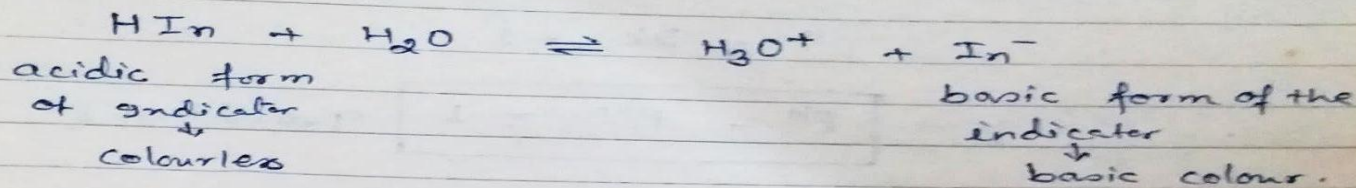 HIn + H₂O ⇌ H₃O⁺ + In⁻
acidic form
of indicater
↓
colourless
basic form of the
indicater
↓
basic colour.